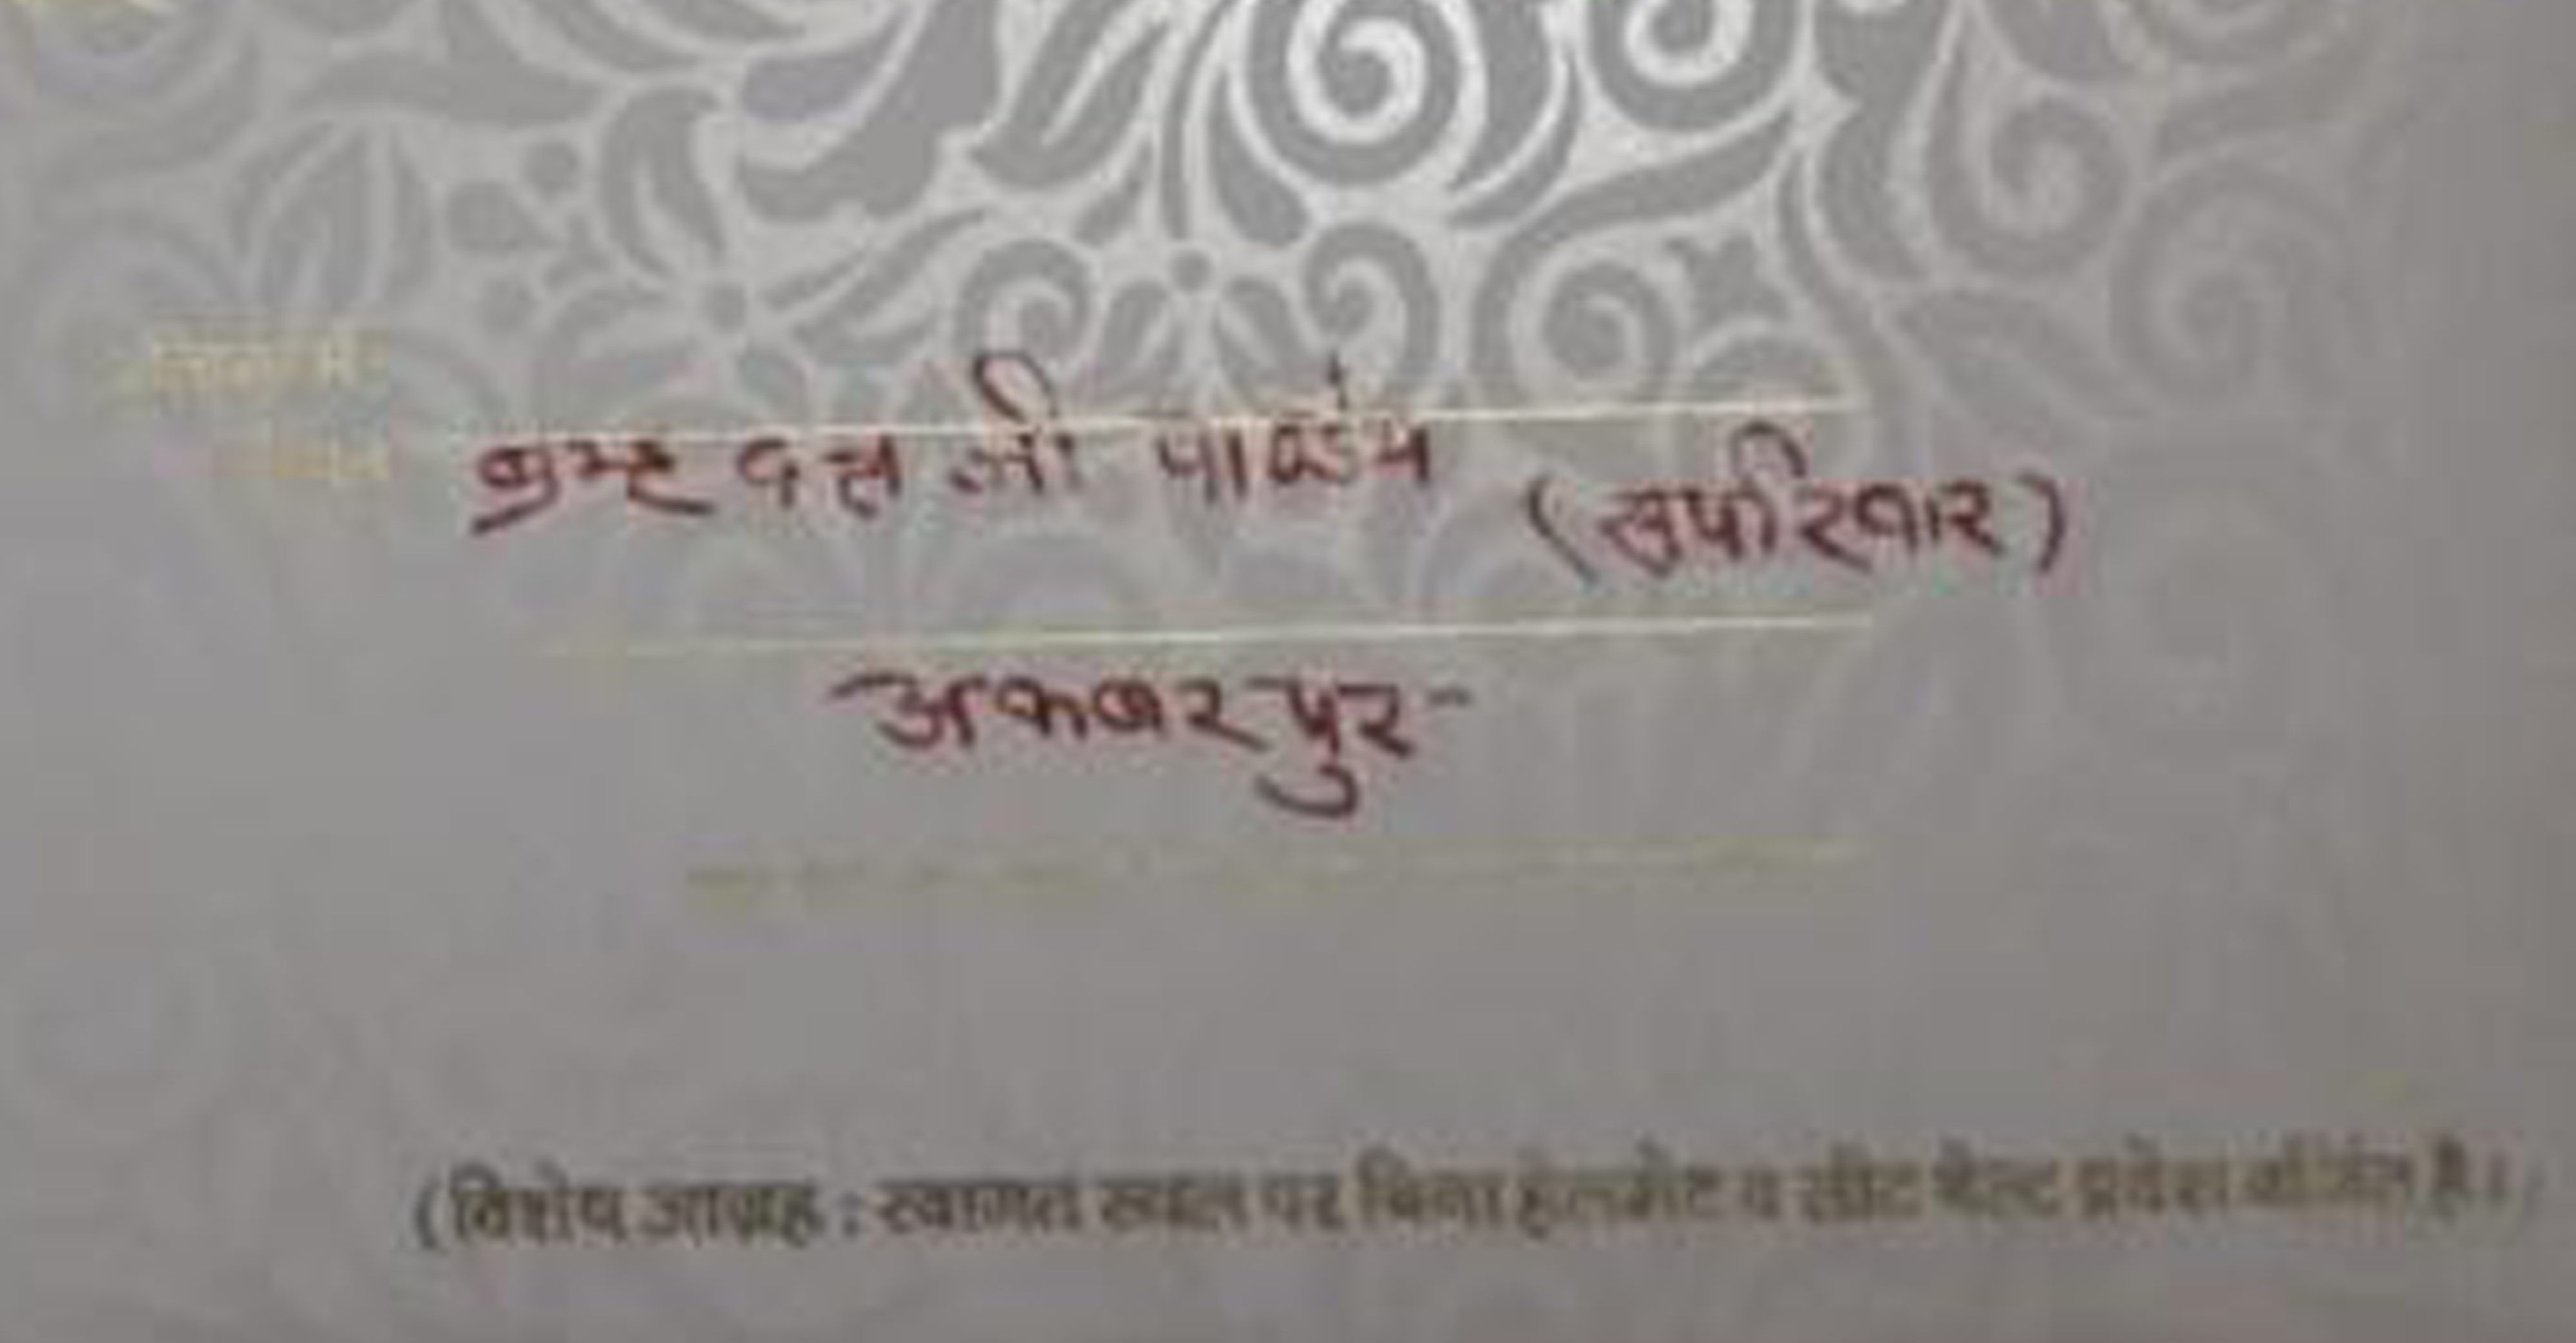 ब्रम्ह दत्त जी पाण्डेय (सपरिवार)
अकबरपुर
(विशेष आग्रह : स्वागत स्थल पर बिना हेलमेट व सीट बेल्ट प्रवेश वर्जित है।)